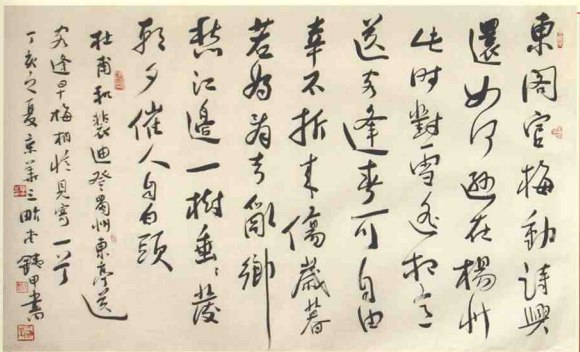 東阁官梅動詩興
還如何遜在楊州
此时對雪遥相憶
送客逢春可自由
幸不折来傷歲暮
若為看去亂鄉
愁江邊一樹垂〻發
朝夕催人自白頭
杜甫和裴迪登蜀州東亭送
客逢早梅相憶見寄一首
丁亥之夏京華三畝銕甲書